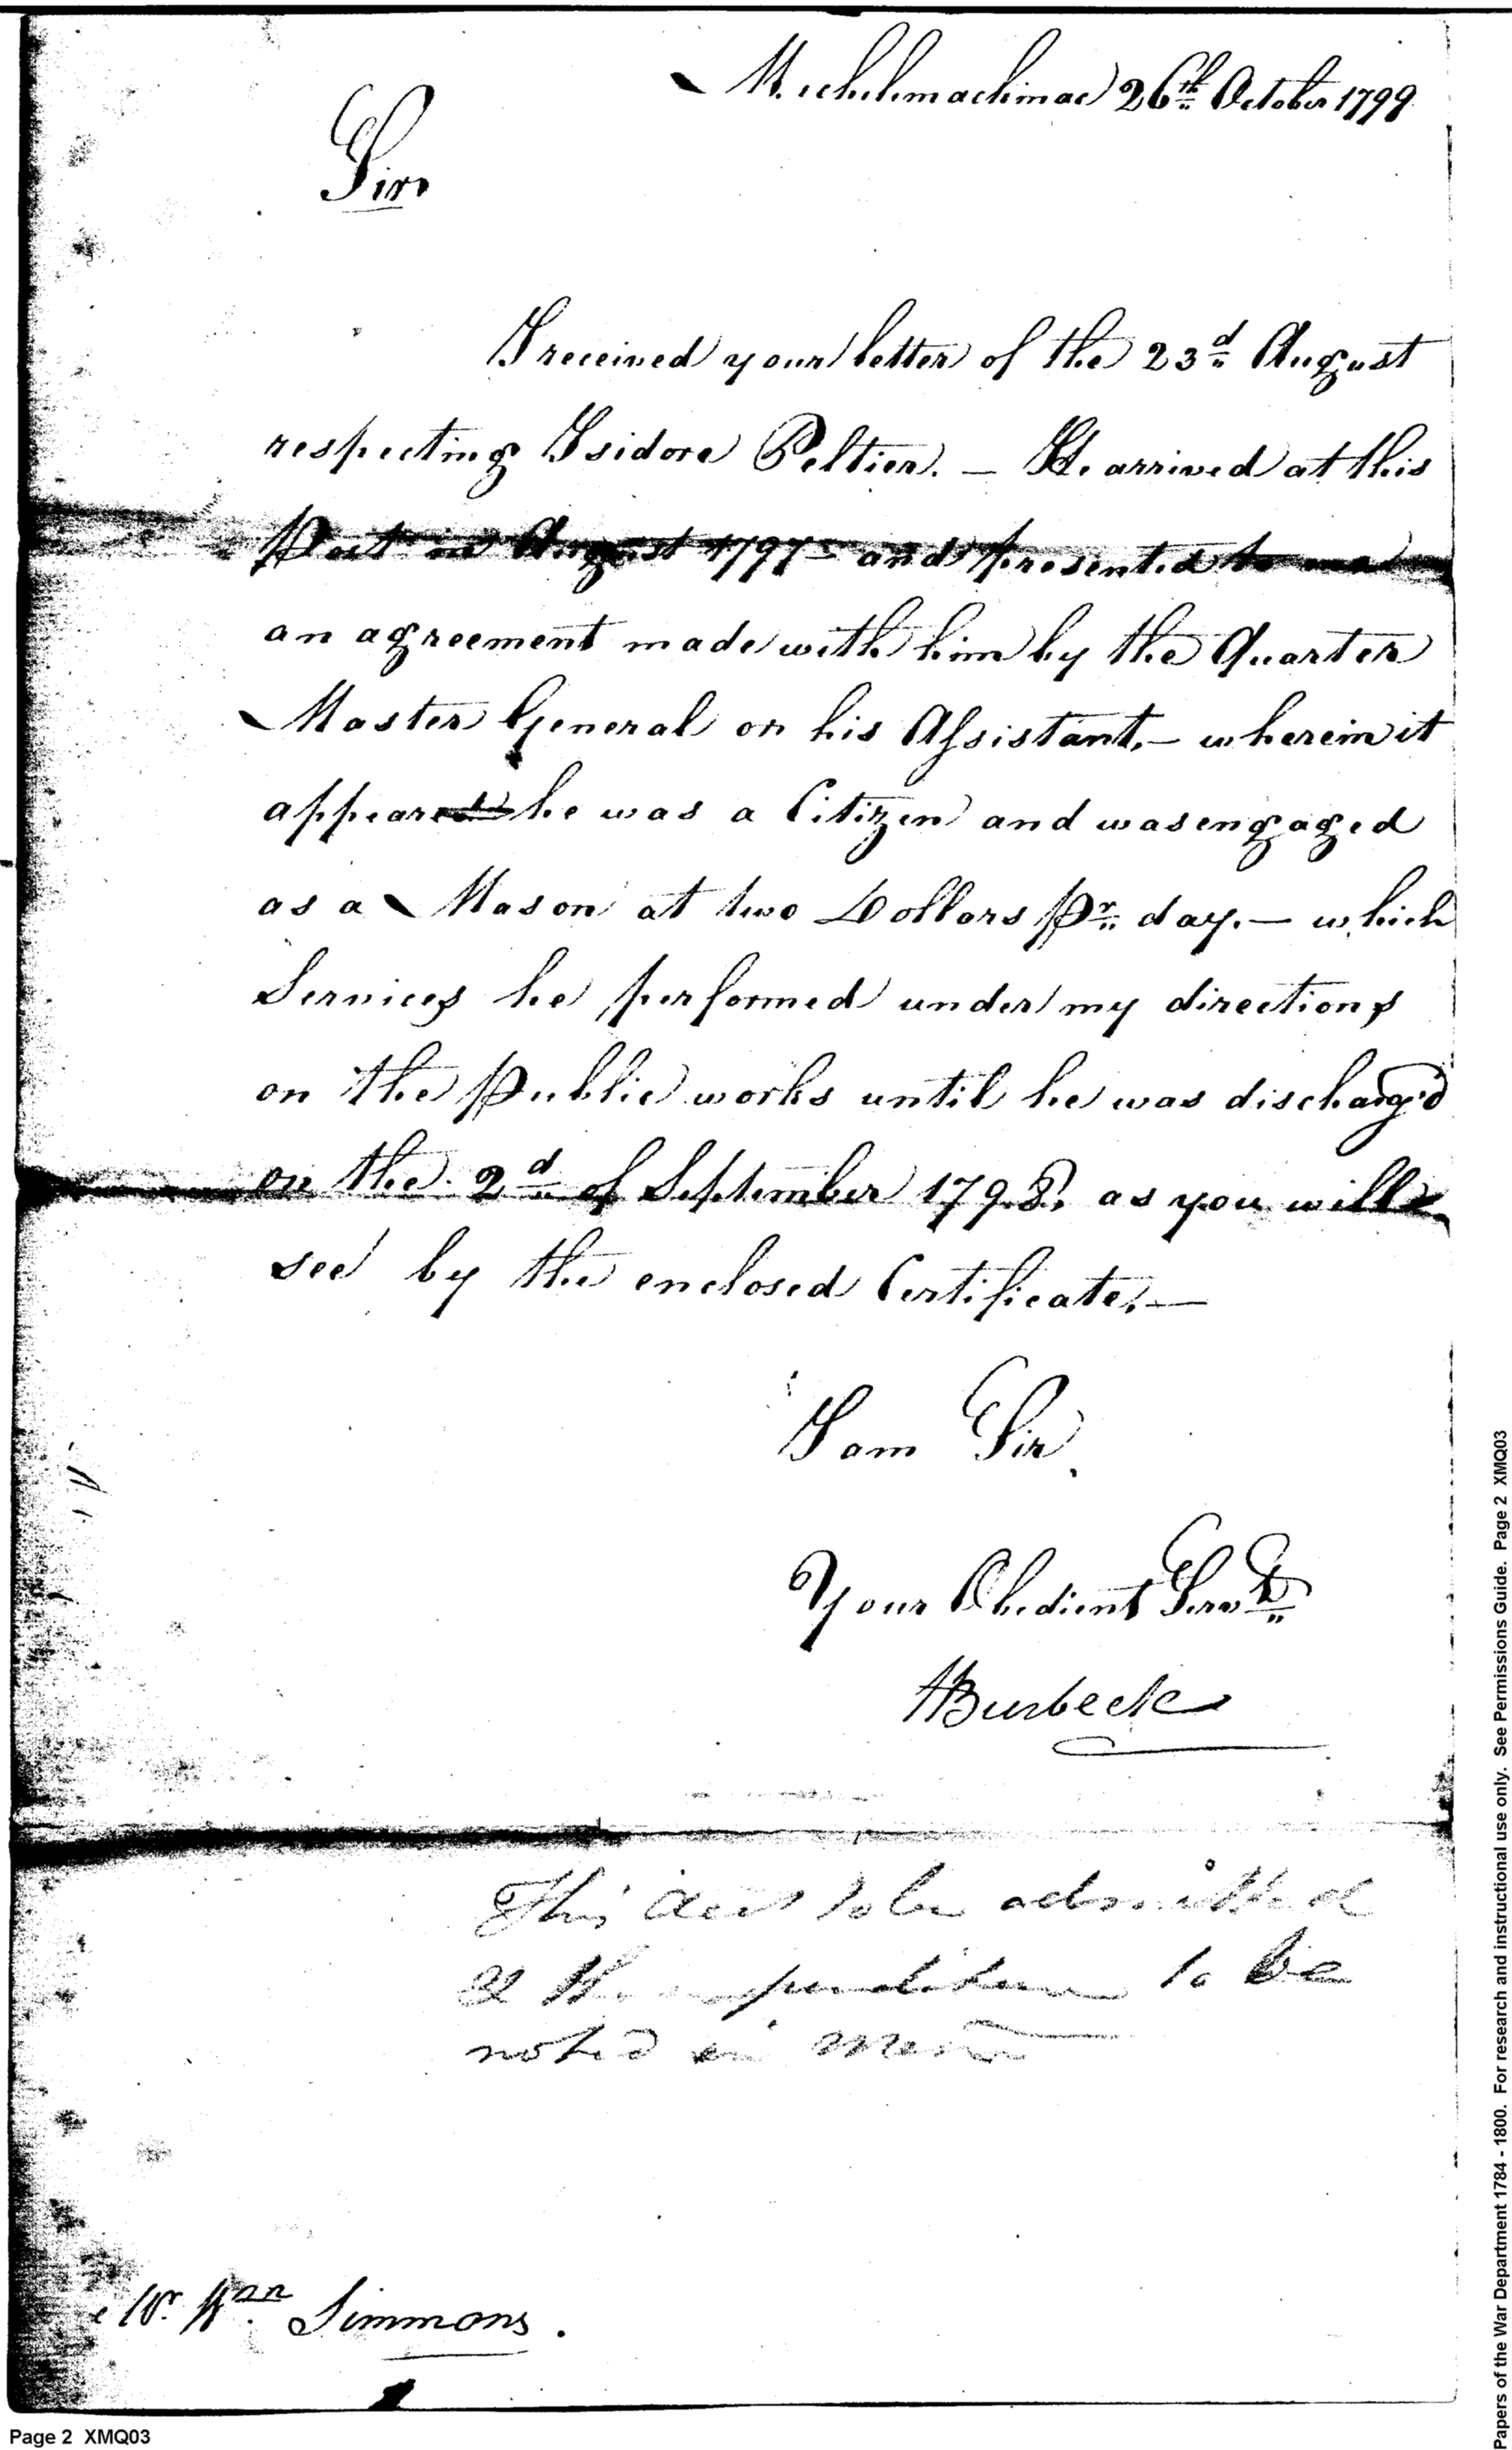 Michilimackinac 26th October 1799
Sir
I received your letter of the 23d August
respecting Isidore Peltier. — He arrived at this
Post in August 1797 — and presented to me
an agreement made with him by the Quarter
Master General or his Assistant, — wherein it
appeared he was a Citizen and was engaged
as a Mason at two Dollars Pr. day. — which
Services he performed under my directions
on the Public works until he was discharg'd
on the 2d of September 1798. as you will
see by the enclosed Certificate. —
I am Sir
Your Obedient Servt
HBurbeck
This to be admitted
& the expenditure to be
noted in
Mr. Wm Simmons.
Page 2 XMQ03
Papers of the War Department 1784 - 1800. For research and instructional use only. See Permissions Guide. Page 2 XMQ03